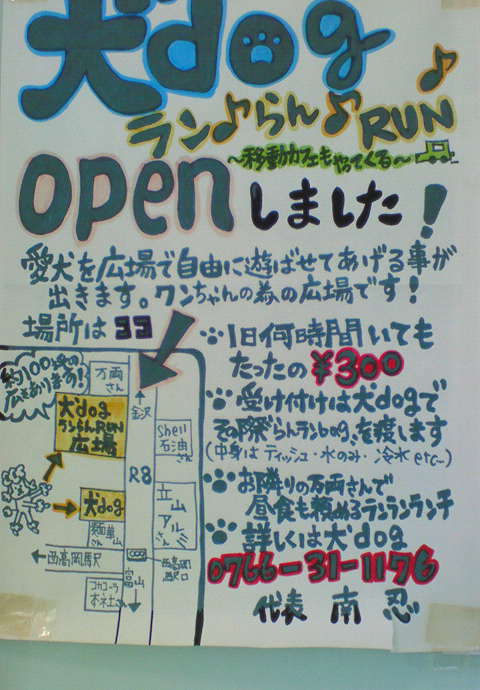 犬dog
ラン♪らん♪RUN
〜移動カフェもやってくる〜
openしました!
愛犬を広場で自由に遊ばせてあげる事が
出きます。ワンちゃんの為の広場です!
場所はココ
1日何時間いても
たったの¥300
受け付けは犬dogで
その際らんランbag、を渡します
(中身はティッシュ・水のみ・冷水etc~)
お隣りの万両さんで
昼食も頼めるランランランチ
詳しくは犬dog
0766-31-1176
代表 南 忍
約100坪の
広さあります!
万両
さん
犬dog
ランらんRUN
広場
犬dog
さん
西高岡駅
コカコーラ
さん
金沢
R8
富山
Shell
石油
さん
立山
アルミ
さん
西高岡
駅口